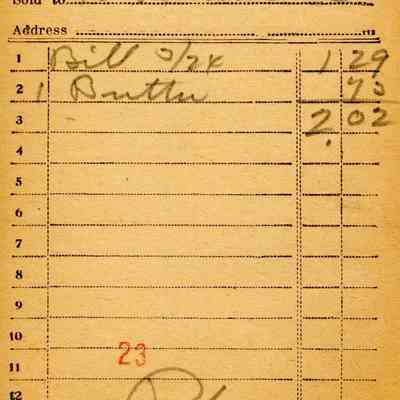 Sold to
Address
1 Bill 1 29
2 1 Butter 73
3 2 02
4
5
6
7
8
9
10
23
11
12